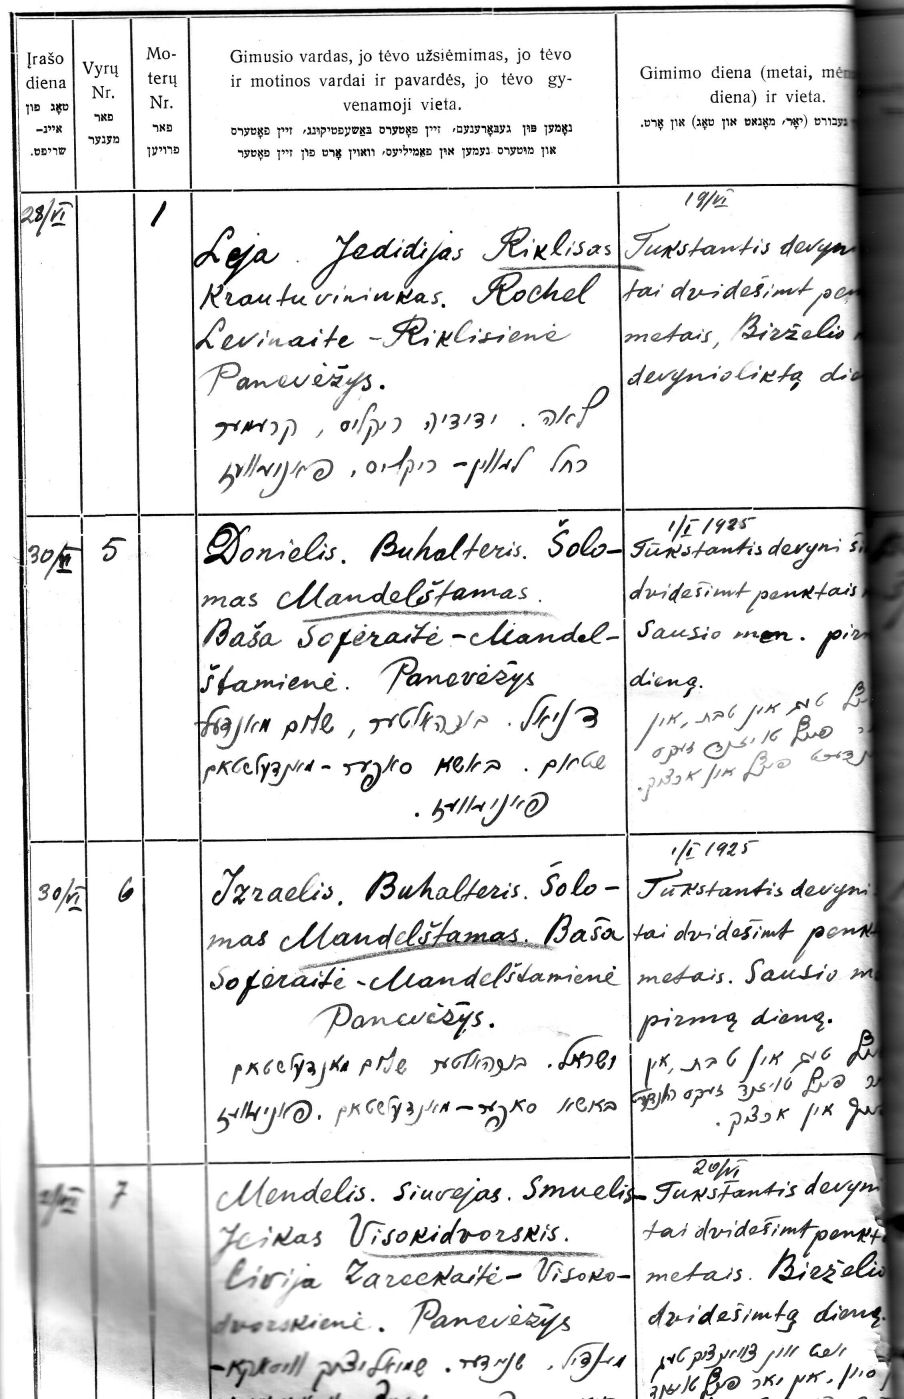 Įrašo
diena
טאָג פון
איינ-
שריפט.
Vyrų
Nr.
פאר
מענער
Mo-
terų
Nr.
פאר
פרויען
Gimusio vardas, jo tėvo užsiėmimas, jo tėvo
ir motinos vardai ir pavardės, jo tėvo gy-
venamoji vieta.
נאָמען פון געבאָרענעם, זיין פאָטערס באַשעפטיקונג, זיין פאָטערס
און מוטערס נעמען און פאַמיליעס, וואוין אָרט פון זיין פאָטער
Gimimo diena (metai,
diena) ir vieta.
געבורט (יאָר, מאָנאט און טאָג) און אָרט.
28/VI
1
Leja. Jedidijas Riklisas
Krautuvininkas. Rochel
Levinaite-Riklisienė
Panevėžys.
לאה. ידידיה ריקליס, קרעמער
רחל לעווין-ריקליס, פאניוועז
19/VI
Tukstantis devyn
tai dvidešimt pen
metais, Birželio
devynioliktą die
30/VI
5
Donielis. Buhalteris. Šolo-
mas Mandelštamas.
Baša Soferaitė-Mandel-
štamienė. Panevėžys
דניאל. בוכהאלטער, שלום מאנדעל
שטאם. באשא סאפער-מאנדעלשטאם
פאניוועז.
1/I 1925
Tūkstantis devyni
dvidešimt penktais
Sausio men. pir
dieną.
טאג אין טבת, אין
פינף טויזנד זעקס
פינף און אכציק.
30/VI
6
Izraelis. Buhalteris. Šolo-
mas Mandelštamas. Baša
Soferaitė-Mandelštamienė
Panevėžys.
ישראל. בוכהאלטער שלום מאנדעלשטאם
באשא סאפער-מאנדעלשטאם. פאניוועז
1/I 1925
Tūkstantis devyni
tai dvidešimt penk
metais. Sausio m
pirmą dieną.
טאג אין טבת, אין
פינף טויזנד זעקס הונדערט
און אכציק.
7
Mendelis. Siuvejas. Smuelis-
Jeikas Visokidvorskis.
Civija Zareckaitė-Visoko-
dvorskienė. Panevėžys
מענדיל. שניידער. שמואל
20/VI
Tukstantis devyni
tai dvidešimt penkt
metais. Birželio
dvidešimtą dieną.